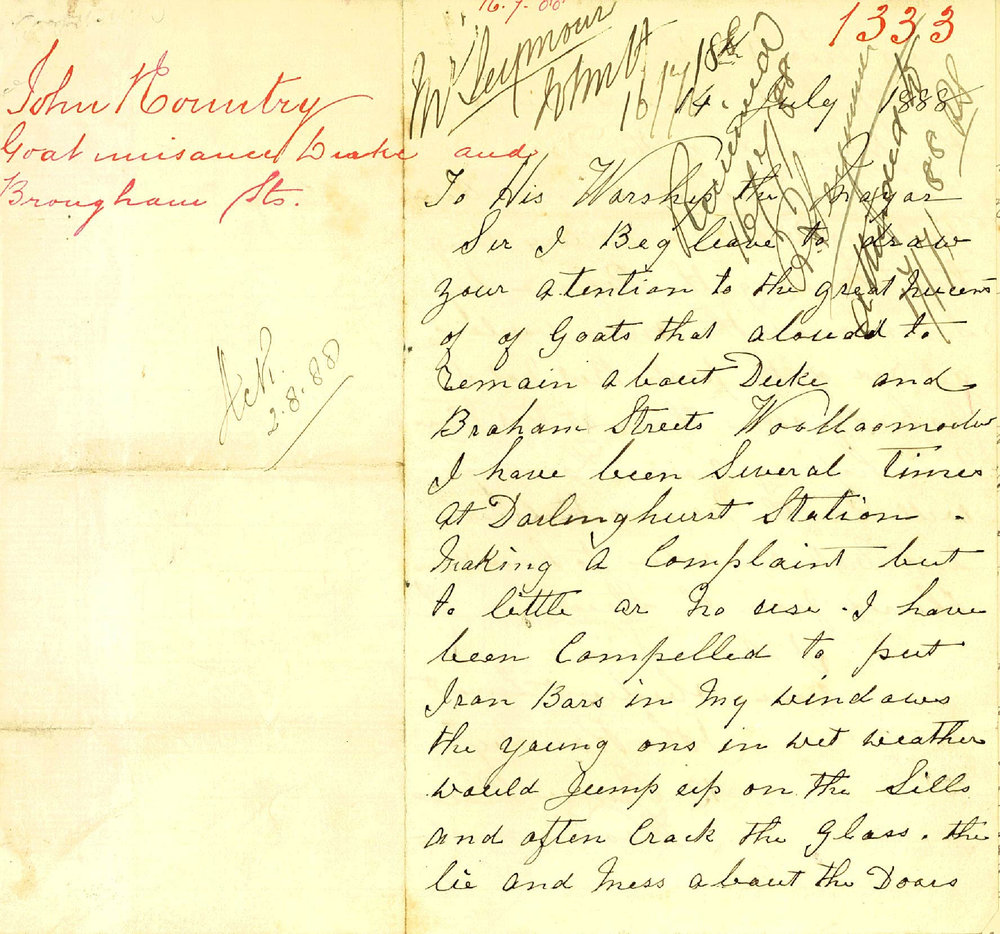 John Kountry
Goat nuisance Duke and
Brougham Sts.
Ack.
2.8.88
16.7.88
1333
Mr Seymour
16/7/188
14. July 1888
To His Warship the Mayar
Sir I Beg leave to draw
your atention to the great
of of Goats that aloud to
remain about Duke and
Braham Streets Woollaomooloo
I have been Several times
at Darlinghurst Station -
Making a Complaint but
to little ar no use . I have
been Compelled to put
Iran Bars in My windaws
the young ons in wet weather
would Jump up on the Sills
and often Crack the Glass . the
lie and Mess about the Doars